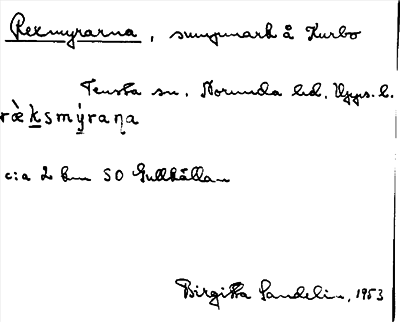 Rexmyrarna, sumpmark å Kurbo
Tensta sn, Norunda hd, Upps. l.
ræ̀ksmýraṇa
c:a 2 km SO Gullkällan
Birgitta Sandelin, 1953